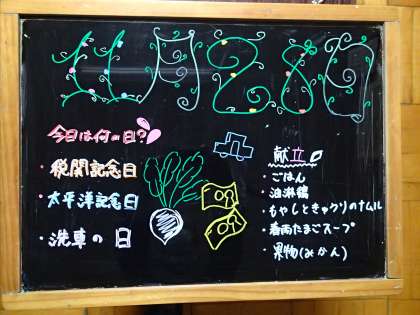 11月28日
今日は何の日?
・税関記念日
・太平洋記念日
・洗車の日
献立
・ごはん
・油淋鶏
・もやしときゅうりのナムル
・春雨たまごスープ
・果物(みかん)